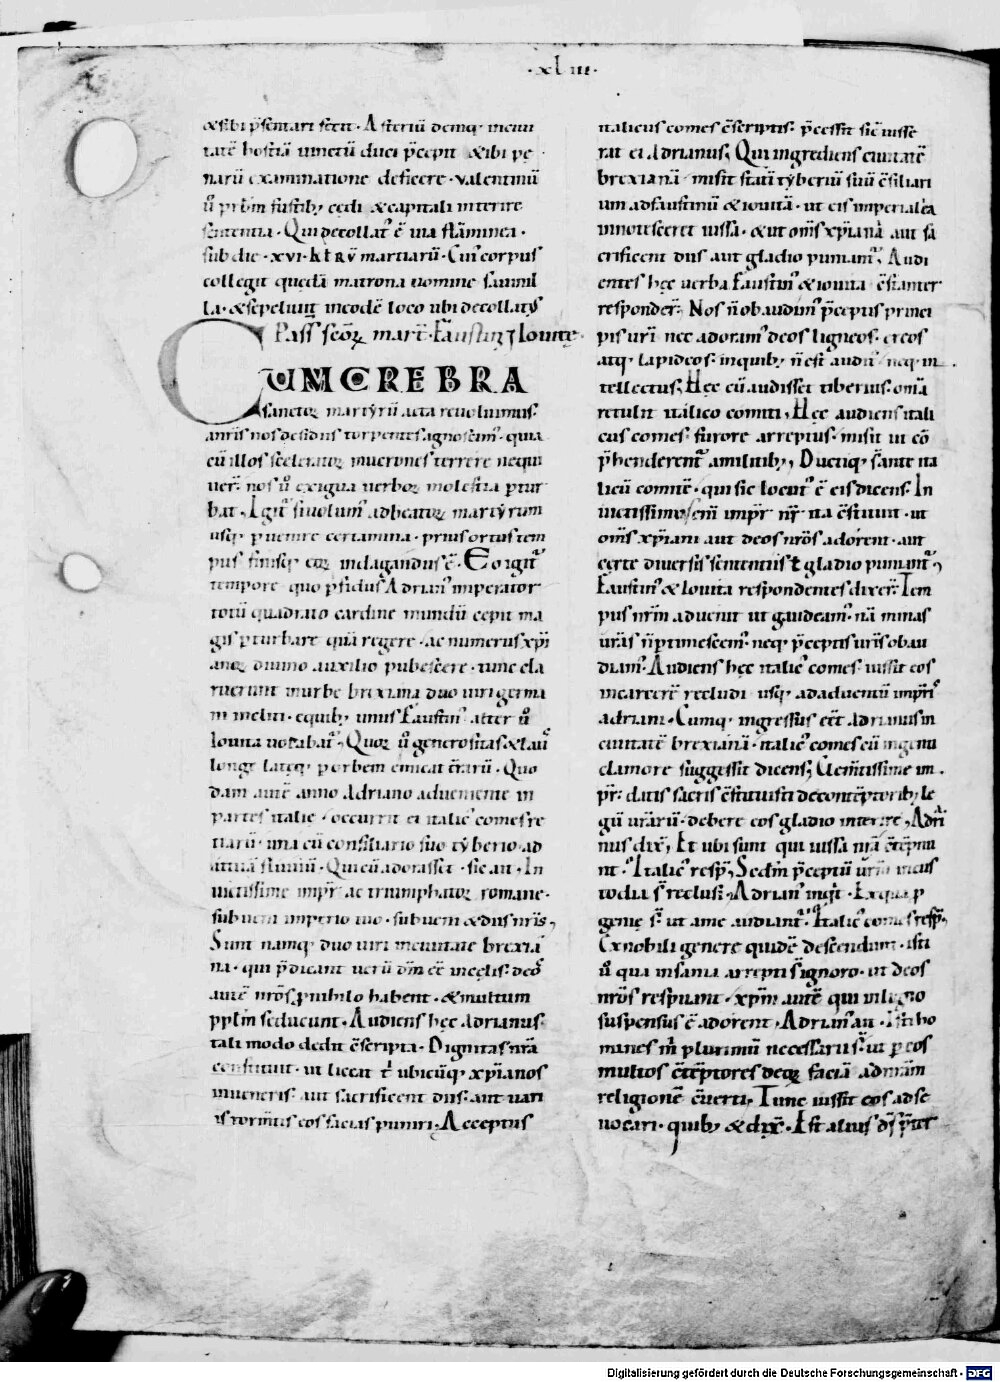 ·xLIII·
&sibi p̄sentari fecit· Asteriū demq; incivi
tatē hostiā vinctū duci p̄cepit &ibi pę
narū examinatione deficere· valentinū
v̊ pr̄bm fustib; cędi &capitali interire
sententia· Qui decollat᷑ ē via flāminea·
sub die· xvi· kƚ RṼ martiarū· Cui᷒ corpus
collegit quędā matrona nomine sauinil
la· &sepeliuit ineodē loco ubi decollat᷒
Pass̄ scōꝝ mart̄· Faustini ⁊ Iouitę·
CUM CREBRA
sanctoꝝ martyrū acta reuoluimus·
anr̄is nos desidiis torpentes agnoscim᷒· quia
cū illos sceleratoꝝ mucrones terrere nequi
uer̄· nos v̊ exigua uerboꝝ molestia ꝑtur
bat· Igit᷑ siuolum᷒ adbeatoꝝ martyrum
usq; ꝑuenire certamina· prius ortus tem
pus finisq; eoꝝ indagandus ē· Eo igit᷑
tempore quo ꝑfidus Adrian᷒ imperator
totū quadrato cardine mundū cepit ma
gis ꝑturbare quā regere· ac numerus xp̄i
anoꝝ diuino auxilio pubescere· tunc cla
ruerunt inurbe brexiana duo uiri germa
ni incliti· equib; unus Faustin᷒ alter v̊
Iouita uocabat᷑; Quoꝝ v̊ generositas &lau᷒
longe lateq; ꝑorbem emicat t̄rarū· Quo
dam autē anno Adriano adueniente in
partes italie· occurrit ei italic᷒ comes re
tiarū· una cū consiliario suo tyberio ad
Qui cū adorasset· sic ait· In
uictissime imp̄r ac triumphator romane·
subueni imperio tuo· subueni &diis nr̄is;
Sunt namq; duo uiri inciuitate brexia
na· qui p̄dicant uerū dm̄ eē incęlis· deos
autē nr̄os ꝓnihilo habent· &multum
pplm̄ seducunt· Audiens hęc Adrianus·
tali modo dedit c̄scripta· Dignitas nr̄a
constituit· ut liceat t᷑ ubicūq; xp̄ianos
inueneris· aut sacrificent diis· aut uari
is torm̄tis eos facias puniri; Acceptus
italicus comes c̄scriptis· p̄cessit sic̄ iusse
rat ei Adrianus; Qui ingrediens ciuitatē
brexianā misit statī tyberiū suū c̄siliari
um adfaustinū &iouitā· ut eis imperialęa
innotesceret iussa· &ut om̄s xp̄iani aut sa
crificent diis aut gladio punian᷑; Audi
entes hęc uerba Faustin᷒ &iouita c̄stanter
responder̄· Nos n̄ obaudim᷒ p̄ceptis princi
pis ur̄i nec adoram᷒ deos ligneos· ereos
atq; lapideos· inquib; n̄ est audit᷒ neq; in
tellectus; Hęc cū audisset tiberius· om̄a
retulit italico comiti; Hęc audiens itali
cus comes· furore arreptus· misit ut cō
p̄henderent᷑ amilitib;, Ductiq; s̄ ante ita
licū comitē· qui sic locut᷒ ē eis dicens· In
uictissimus eni imp̄r nr̄ ita c̄stituit· ut
om̄s xp̄iani aut deos nr̄os adorent· aut
certe diuersis sententiis ꞇ gladio puniant᷑;
Faustin᷒ &Iouita respondentes dixer̄· Tem
pus nr̄m aduenit ut gaudeam᷒· nā minas
ur̄as n̄ ꝑtimescem᷒· neq; p̄ceptis ur̄is obau
diam᷒; Audiens hęc italic᷒ comes· iussit eos
incarcerē recludi usq; adaduentū imp̄ris
adriani· Cumq; ingressus eēt Adrianus in
ciuitatē brexianā· italic᷒ comes cū ingenti
clamore suggessit dicens; Clem̄tissime im
p̄r· datis sacris c̄stituisti decontēptorib; le
gū ur̄arū· debere eos gladio interire; Adri
nus dix̄; Et ubi sunt qui iussa nr̄a c̄tēpnu
nt· Italic᷒ resp̄; Sedm̄ p̄ceptū ur̄m incus
todia s̄ reclusi; Adrian᷒ inq̄t· Exqua ꝓ
genie s̄· ut ame audiant᷑· Italic᷒ comes resp̄;
Exnobili genere quidē descendunt· isti
v̊ qua insania arrepti s̄ ignoro· ut deos
nr̄os respuant· xp̄m autē qui inligno
suspensus ē adorent· Adrian᷒ ait· Isti ho
mines m̄ plurimū necessarii s̄· ut ꝑ eos
multos c̄tēptores deoꝝ faciā adnr̄am
religionē c̄uerti; Tunc iussit eos adse
uocari· quib; &dix̄· Est alius d̄s p̄ter
Digitalisierung gefördert durch die Deutsche Forschungsgemeinschaft - DFG